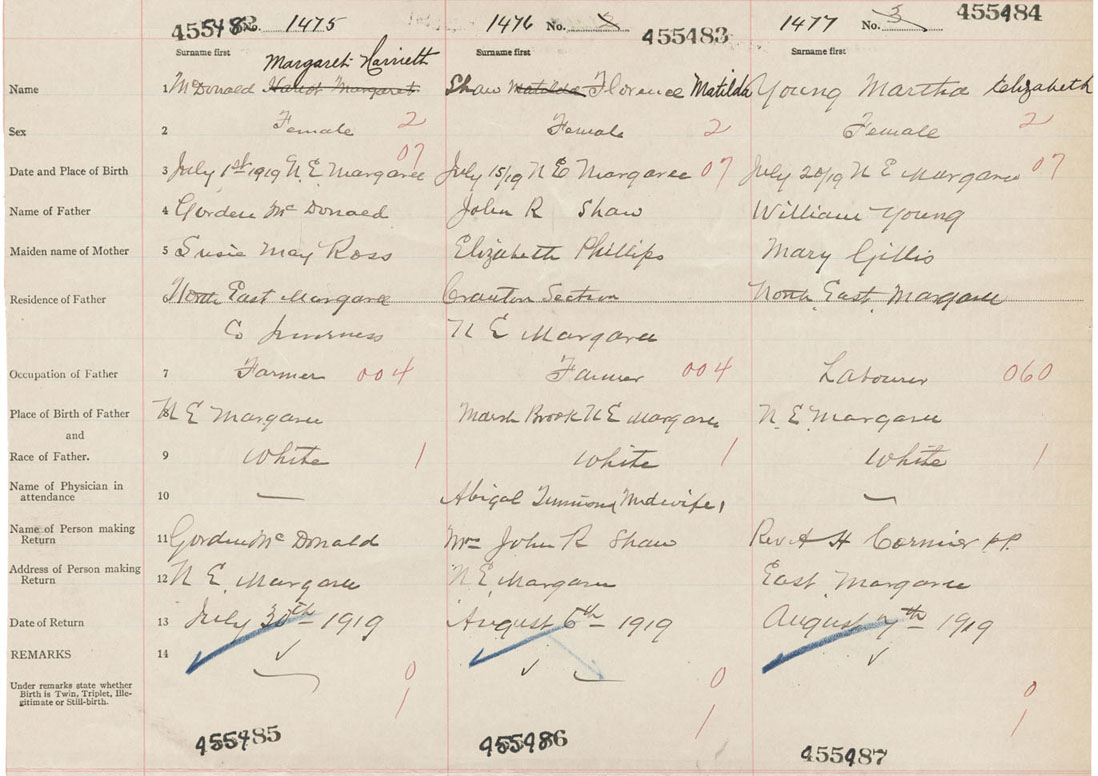 455482 No. 1475 1476 No. 2 455483 1477 No. 3 455484
Surname first Surname first Surname first
Margaret Harrieth
Name 1 McDonald Harriet Margaret Shaw Matilda Florence Matilda Young Martha Elizabeth
Sex 2 Female 2 Female 2 Female 2
Date and Place of Birth 3 July 1st 1919 N. E. Margaree 07 July 15/19 N E Margaree 07 July 20/19 N E Margaree 07
Name of Father 4 Gorden Mc Donald John R Shaw William Young
Maiden name of Mother 5 Susie May Ross Elizabeth Phillips Mary Gillis
Residence of Father North East Margaree Section North East Margaree
Co Inverness N E Margaree
Occupation of Father 7 Farmer 004 Farmer 004 Labourer 060
Place of Birth of Father 8 N E Margaree Marsh Brook N E Margaree N. E. Margaree
and
Race of Father. 9 White 1 White 1 White 1
Name of Physician in
attendance 10 — Abigal (Midwife) —
Name of Person making
Return 11 Gorden Mc Donald Mrs John R Shaw Rev A H Cormier P.P.
Address of Person making
Return 12 N E. Margaree N. E. Margaree East Margaree
Date of Return 13 July 30th 1919 August 6th 1919 August 7th 1919
REMARKS 14
Under remarks state whether
Birth is Twin, Triplet, Ille-
gitimate or Still-birth.
0 0 0
1 1 1
455485 455486 455487